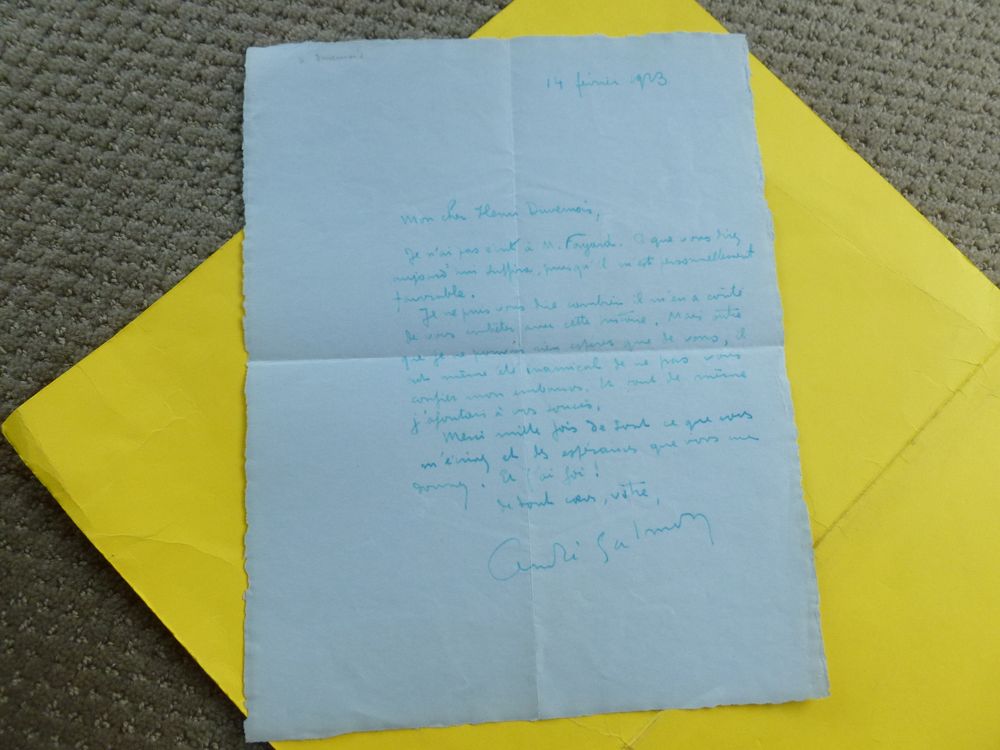 à Duvernois
14 février 1923
Mon cher Henri Duvernois,
Je n'ai pas écrit à M. Fayard. Ce que vous direz
aujourd'hui suffira, puisqu'il m'est personnellement
favorable.
Je ne puis vous dire combien il m'en a coûté
de vous embêter avec cette histoire. Mais outre
que je ne pouvais rien espérer que de vous, il
eut même été inamical de ne pas vous
confier mon embarras. Et tout de même
j'ajoutais à vos soucis.
Merci mille fois de tout ce que vous
m'écrivez et des espérances que vous me
donnez. Et j'ai foi !
de tout cœur, vôtre,
André Salmon